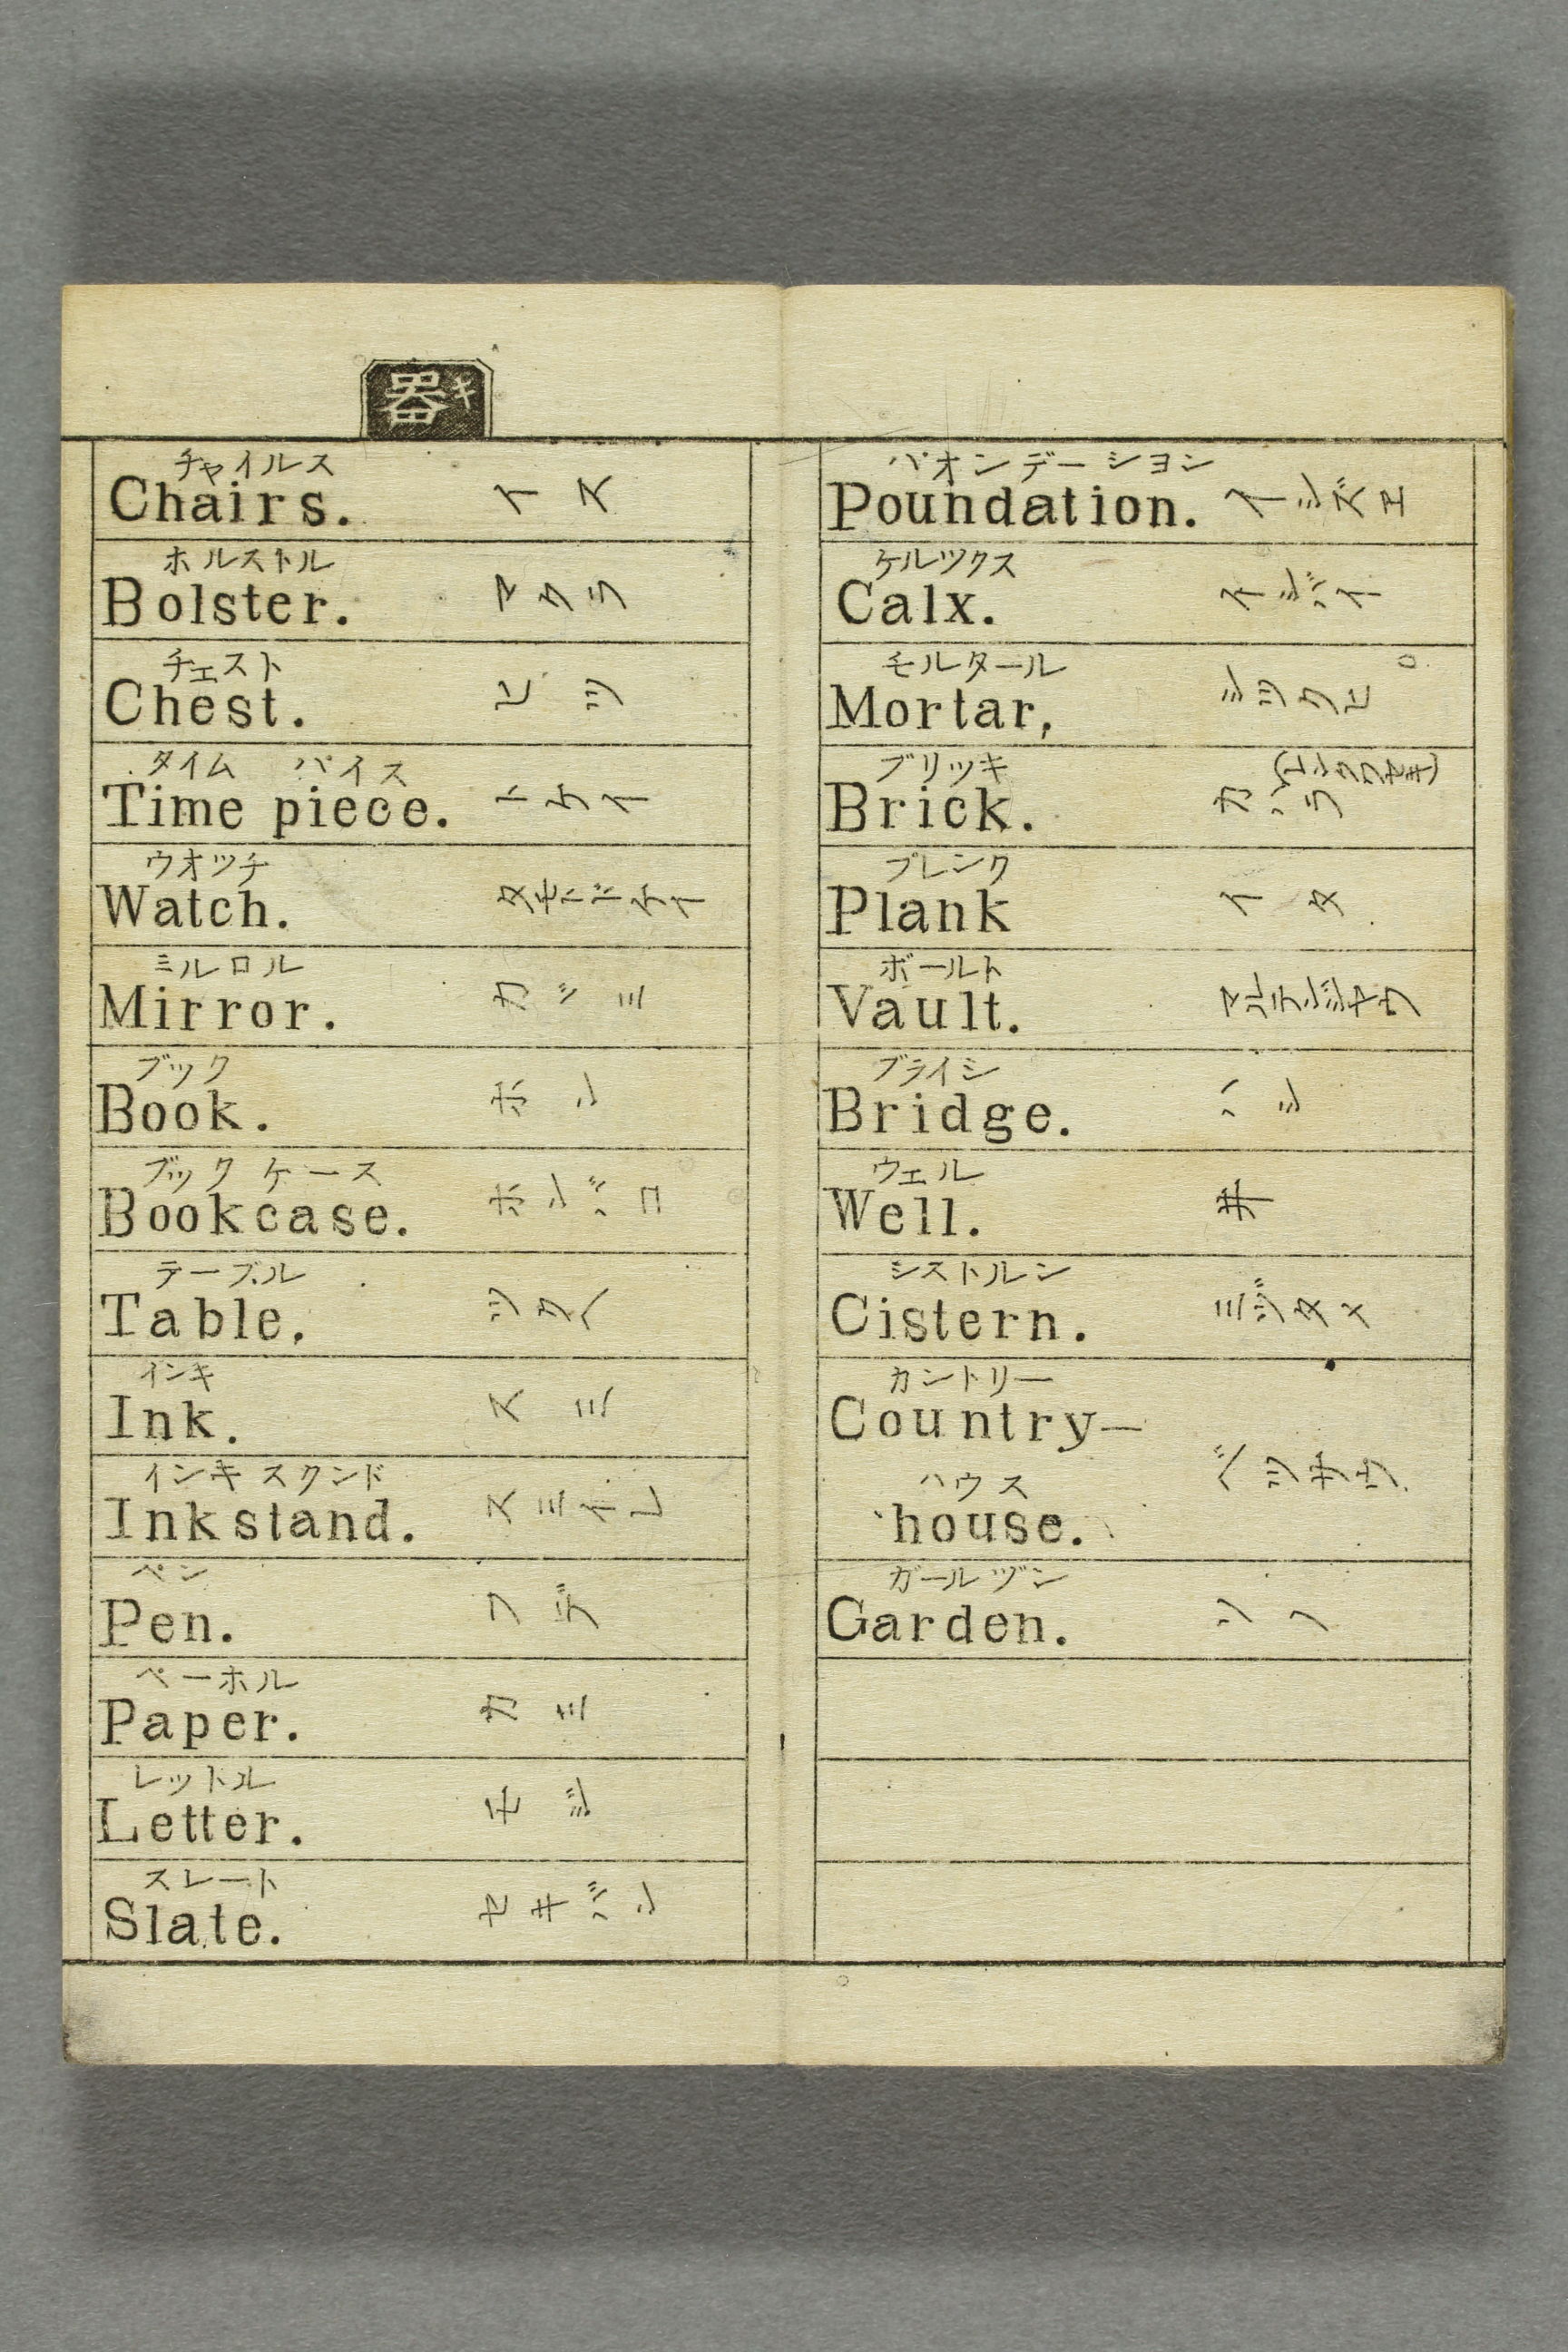 器 キ
チャイルス
Chairs. イス
ホルストル
Bolster. マクラ
チェスト
Chest. ヒツ
タイム パイス
Time piece. トケイ
ウオツチ
Watch. タモトドケイ
ミルロル
Mirror. カヾミ
ブック
Book. ホン
ブック ケース
Bookcase. ホンバコ
テーブル
Table. ツクヘ
インキ
Ink. スミ
インキ スタンド
Inkstand. スミイレ
ペン
Pen. フデ
ペーホル
Paper. カミ
レットル
Letter. モジ
スレート
Slate. セキバン
パオンデーション
Poundation. イシズエ
ケルツクス
Calx. イシバイ
モルタール
Mortar, シツクヒ
ブリッキ
Brick. カハラ
プレンク
Plank イタ
ボールト
Vault.
ブライシ
Bridge. ハシ
ウェル
Well. 井
シストルン
Cistern. ミヅタメ
カントリー
Country—
ハウス
house.
ガールヅン
Garden. ソノ